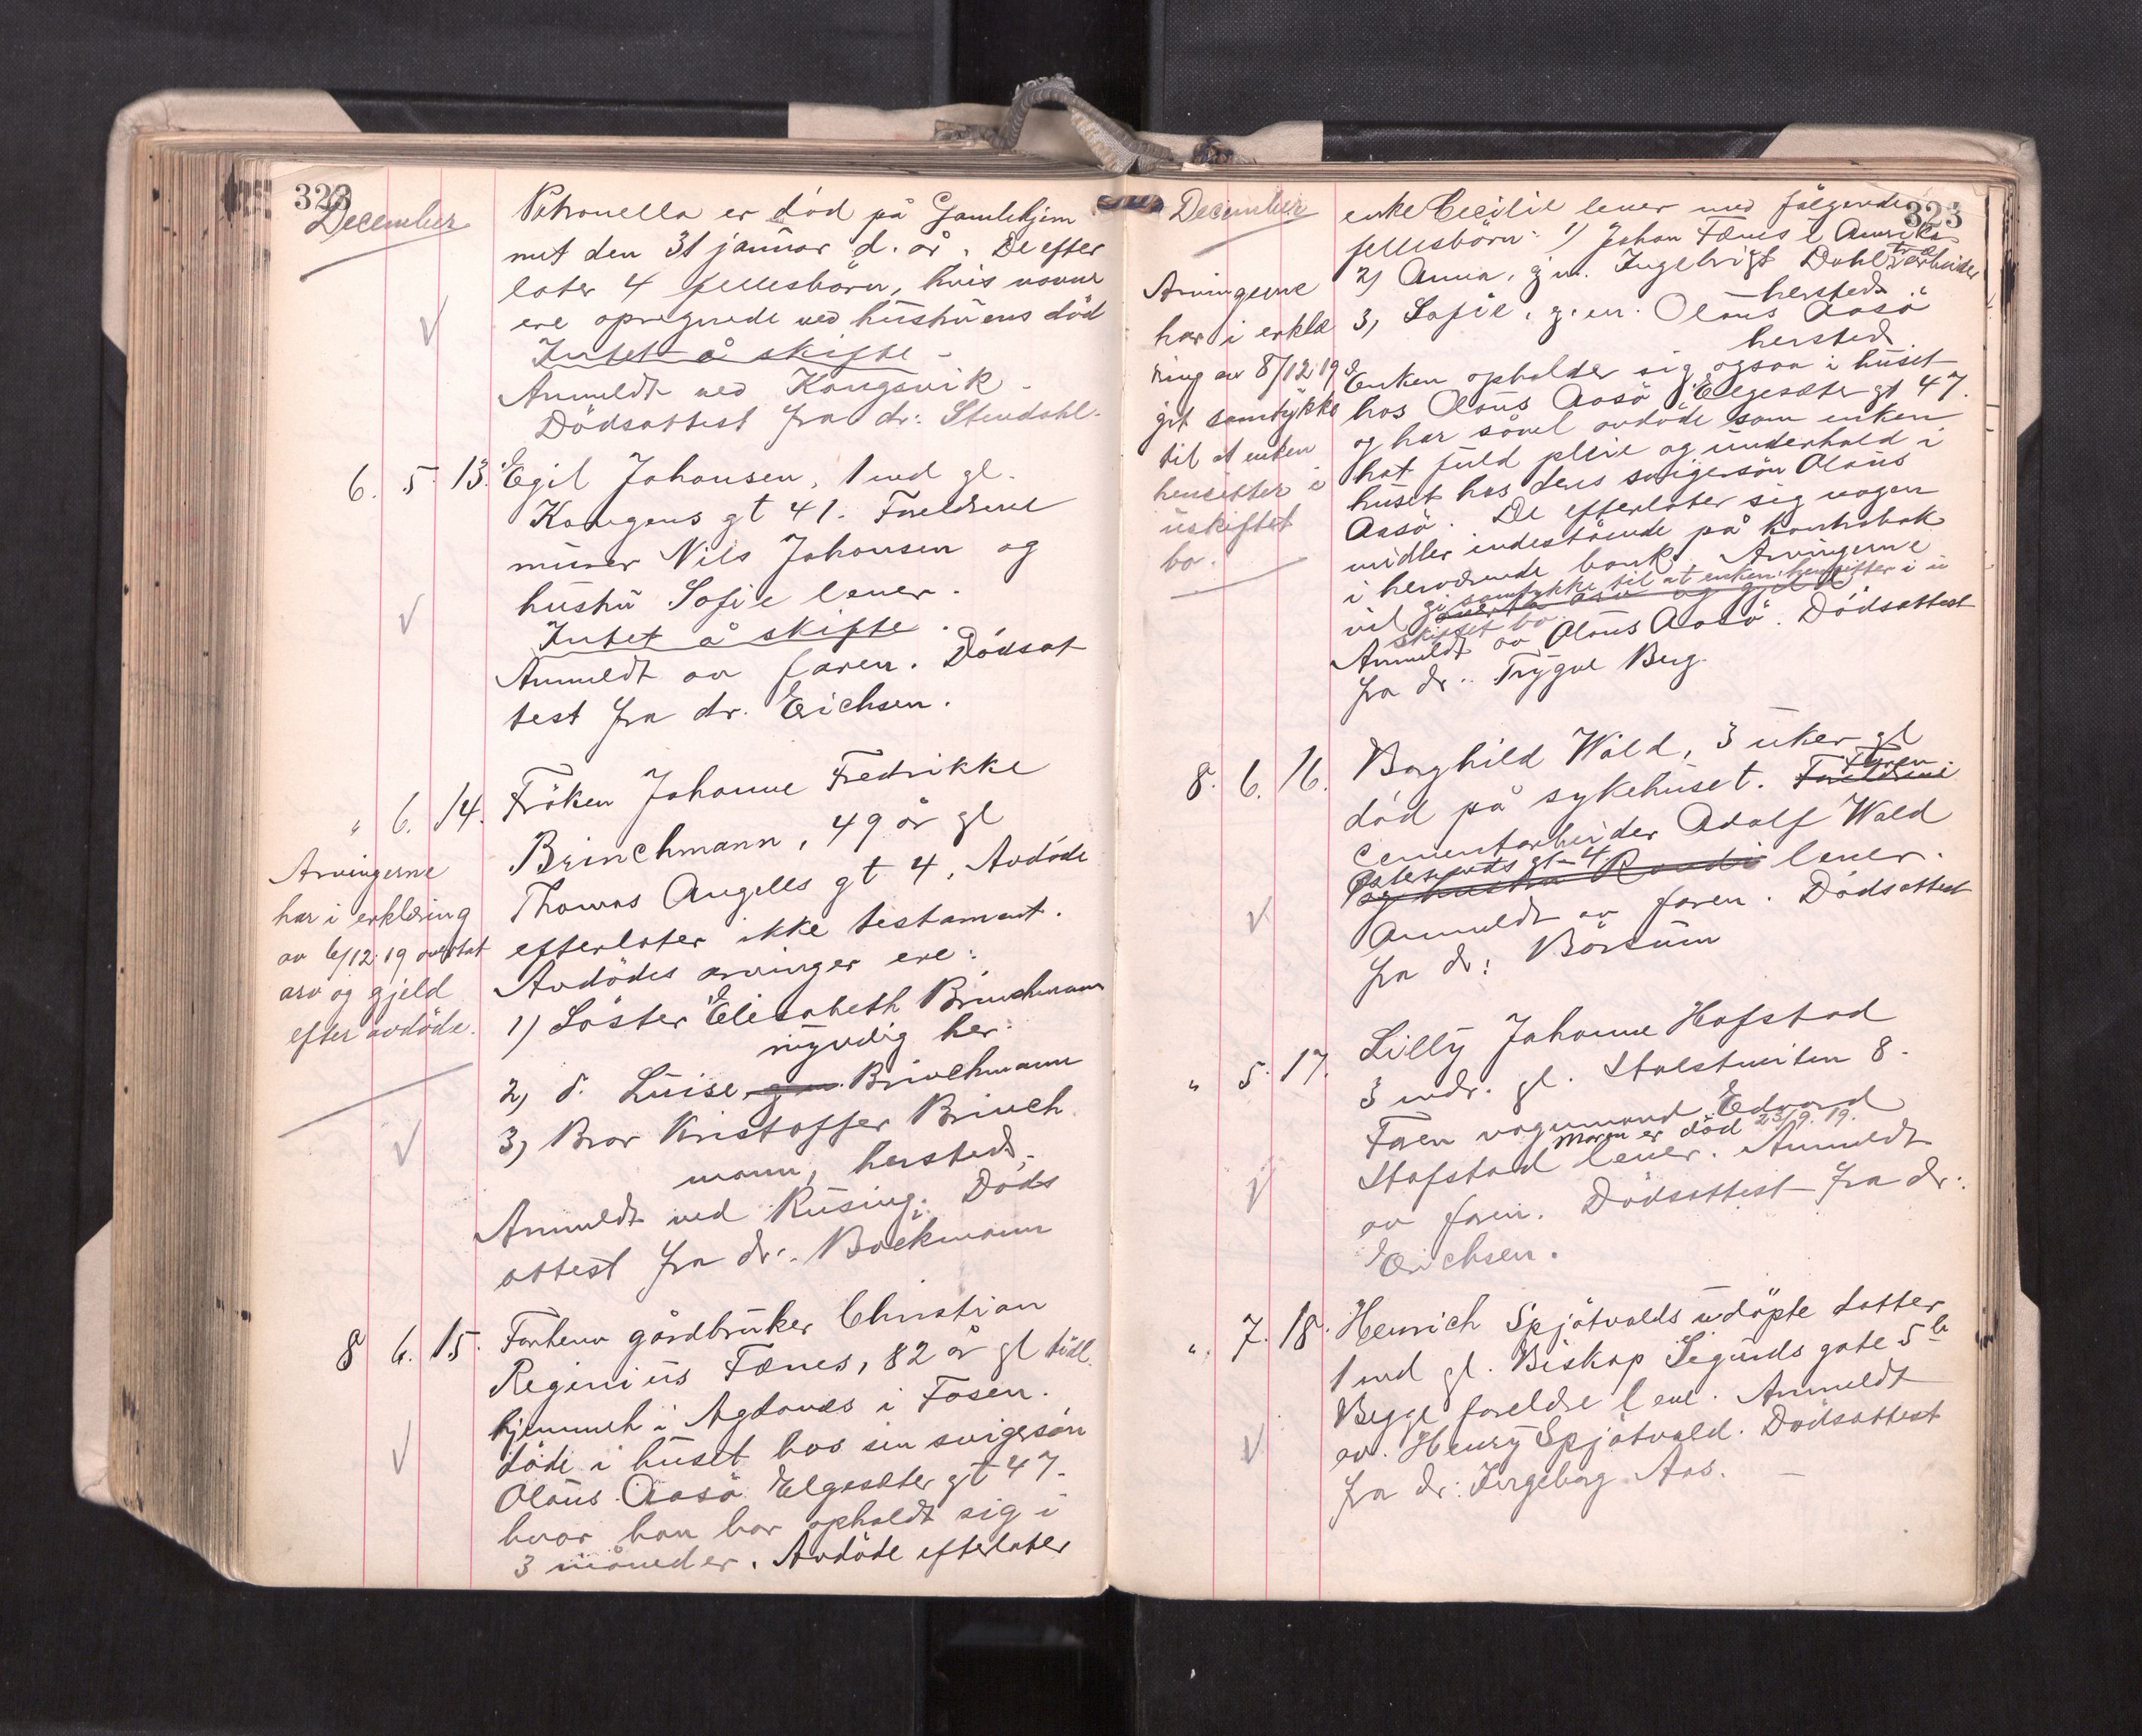 323
December
Petronella er död på Gamlehjem
met den 31 januar d. år. De efter
later 4 fellesbörn, hvis navne
ere opregnede ved hustruens död
Intet å skifte -
Anmeldt ved Kongsvik -
Dödsattest fra dr: Stendahl.
6. 5. 13. Egil Johansen, 1 md gl.
Kongens gt 41. Foreldrene
murer Nils Johansen og
hustru Sofie lever.
Intet å skifte.
Anmeldt av faren. Dödsat
test fra dr. Erichsen.
" 6. 14. Fröken Johanne Fredrikke
Brinchmann, 49 år gl
Thomas Angells gt 4, Avdöde
efterlater ikke testament.
Avdödes arvinger ere:
1) Söster Elisabeth Brinchmann
myndig her.
2, d. Luise gm. Brinchmann
3, Bror Kristoffer Brinch
mann, hersteds,
Anmeldt ved Rusing. Döds
attest fra dr. Bockmann
Arvingerne
har i erklæring
av 6/12.19 overtat
arv og gjeld
efter avdöde.
8 6. 15. Forhenv gårdbruker Christian
Reginius Fænes, 82 år gl tidl.
hjemmeh i Agdanes i Fosen.
döde i huset hos sin svigersön
Olaus Aasö Elgesæter gt 47.
hvor han har opholdt sig i
3 måneder. Avdöde efterlater
323
December
enke Cecilie lever med følgende
fellesbörn: 1) Johan Fænes i Amerika
2) Anna, g.m. Ingebrigt Dahl, arbeider
hersteds
3, Sofie, g.m. Olaus Aasö
hersted.
Enken opholder sig ogsaa i huset
hos Olaus Aasö Elgesæter gt 47.
og har såvel avdöde som enken
hat fuld pleie og underhold i
huset hos deres svigersön Olaus
Aasö. De efterlater sig nogen
midler indestående på kontrabok
i herværende bank. Arvingerne
vil gi samtykke til at enken hensitter i u
overta arv og gjeld
skiftet bo.
Anmeldt av Olaus Aasö. Dödsattest
fra dr. Trygve Berg.
Arvingerne
har i erklæ
ring av 8/12.19
git samtykke
til at enken
hensitter i
uskiftet
bo.
8. 6. 16. Borghild Wold, 3 uker gl
död på sykehuset. Foreldrene Faren
cementarbeider Adolf Wold
Östersunds gt 4.
og hustru Randi lever.
Anmeldt av faren. Dödsattest
fra dr: Börsum
" 5. 17. Lilly Johanne Hofstad
3 mdr. gl. Stolstveiten 8.
Faren vognmand Edvard
Moren er död 23/9.19.
Hofstad lever. Anmeldt
av faren. Dödsattest fra dr.
Erichsen.
" 7. 18. Henrich Spjötvolds udöpte datter
1 md gl. Biskop Sigurds gate 5 b
Begge foreldre leve. Anmeldt
av Henry Spjötvold. Dödsattest
fra dr: Ingeborg Aas.